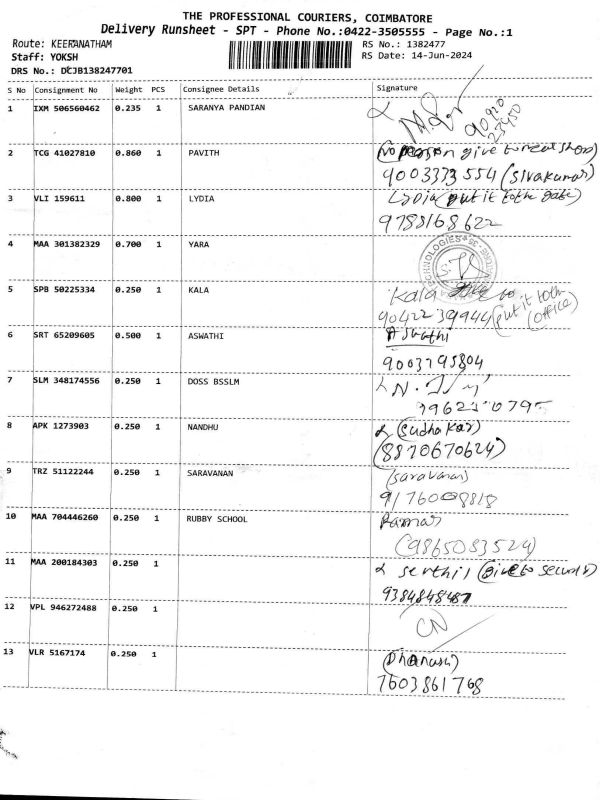 THE PROFESSIONAL COURIERS, COIMBATORE
Delivery Runsheet - SPT - Phone No.:0422-3505555 - Page No.:1
Route: KEERANATHAM
RS No.: 1382477
Staff: YOKSH
RS Date: 14-Jun-2024
DRS No.: DCJB138247701
S No Consignment No Weight PCS Consignee Details Signature
1 IXM 506560462 0.235 1 SARANYA PANDIAN
90920
23450
2 TCG 41027810 0.860 1 PAVITH
give to
9003373554 (Sivakumar)
3 VLI 159611 0.800 1 LYDIA Lydia (put it to the gate)
9788168622
4 MAA 301382329 0.700 1 YARA
5 SPB 50225334 0.250 1 KALA Kala
9042239944 (put it to the office)
6 SRT 65209605 0.500 1 ASWATHI Aswathi
9003795804
7 SLM 348174556 0.250 1 DOSS BSSLM
8 APK 1273903 0.250 1 NANDHU (Sudhakar)
(8870670624)
9 TRZ 51122244 0.250 1 SARAVANAN (saravanan)
9176008818
10 MAA 704446260 0.250 1 RUBBY SCHOOL Raman
(9865083524)
11 MAA 200184303 0.250 1 senthil (give to security)
9384848487
12 VPL 946272488 0.250 1
CN
13 VLR 5167174 0.250 1
7603861768